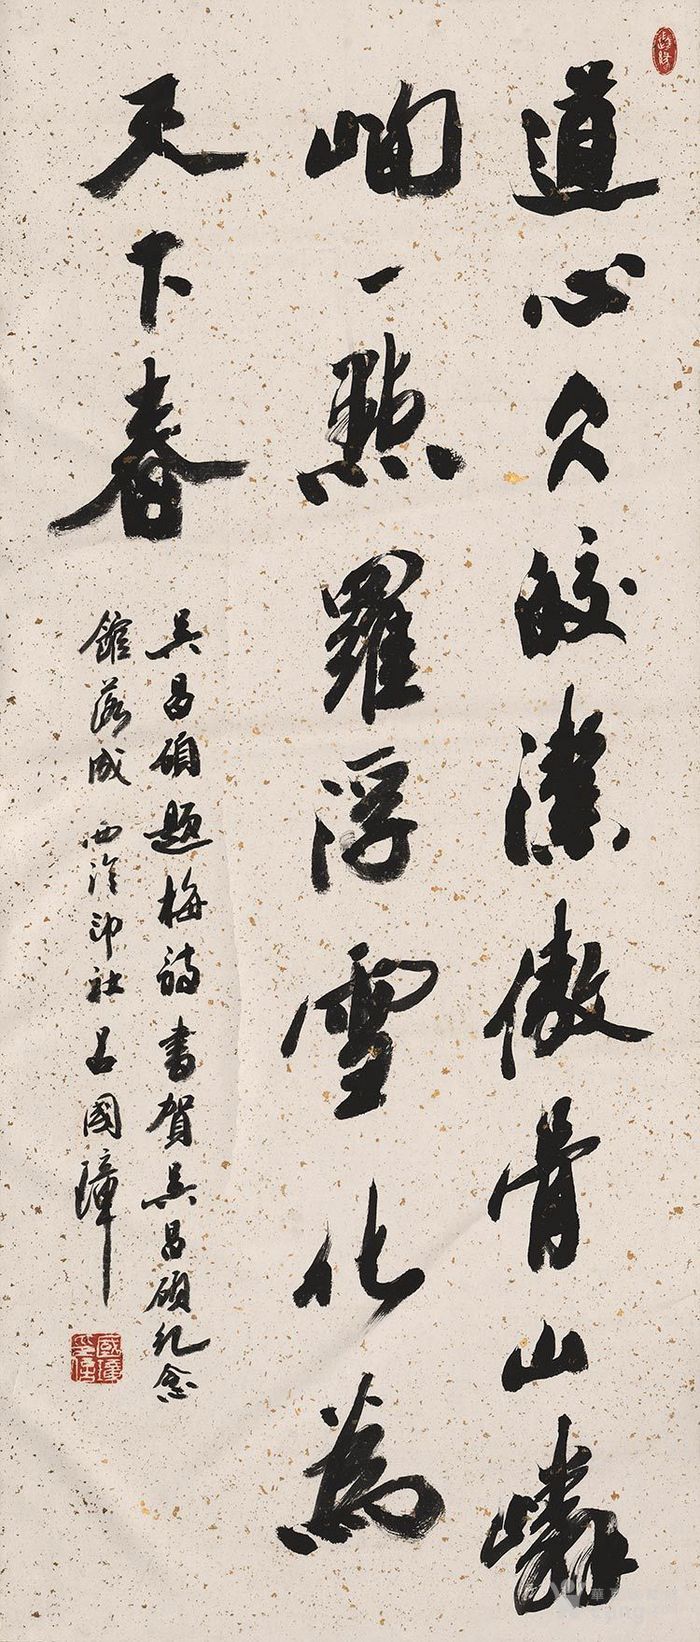 道心久皎潔傲骨山嶙
峋一點羅浮雪化為
天下春
吳昌碩題梅詩書賀吳昌碩紀念
館落成 西泠印社呂國璋